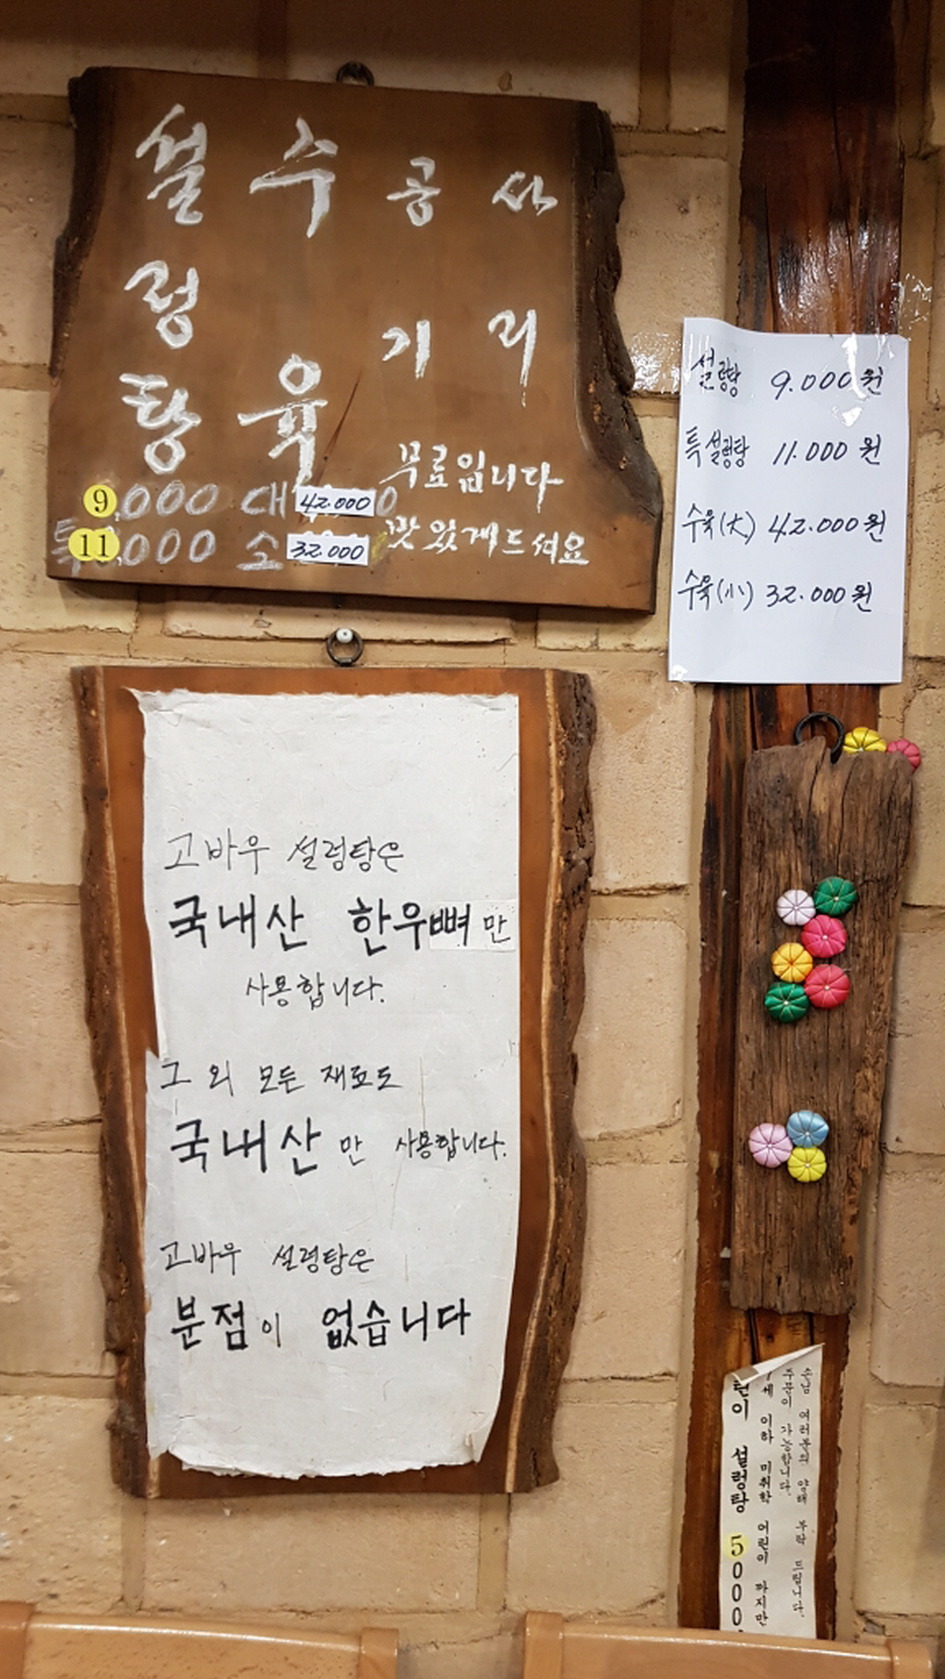 설렁탕
수육
공기
사리
무료입니다
맛있게드셔요
9,000 대 42.000
특 11,000 소 32.000
설렁탕 9.000원
특설렁탕 11.000원
수육(大) 42.000원
수육(小) 32.000원
고바우 설렁탕은
국내산 한우뼈만
사용합니다.
그 외 모든 재료도
국내산만 사용합니다.
고바우 설렁탕은
분점이 없습니다
린이 설렁탕 5000.
세 이하 미취학 어린이 까지만
주문이 가능합니다.
손님 여러분의 양해 부탁 드립니다.